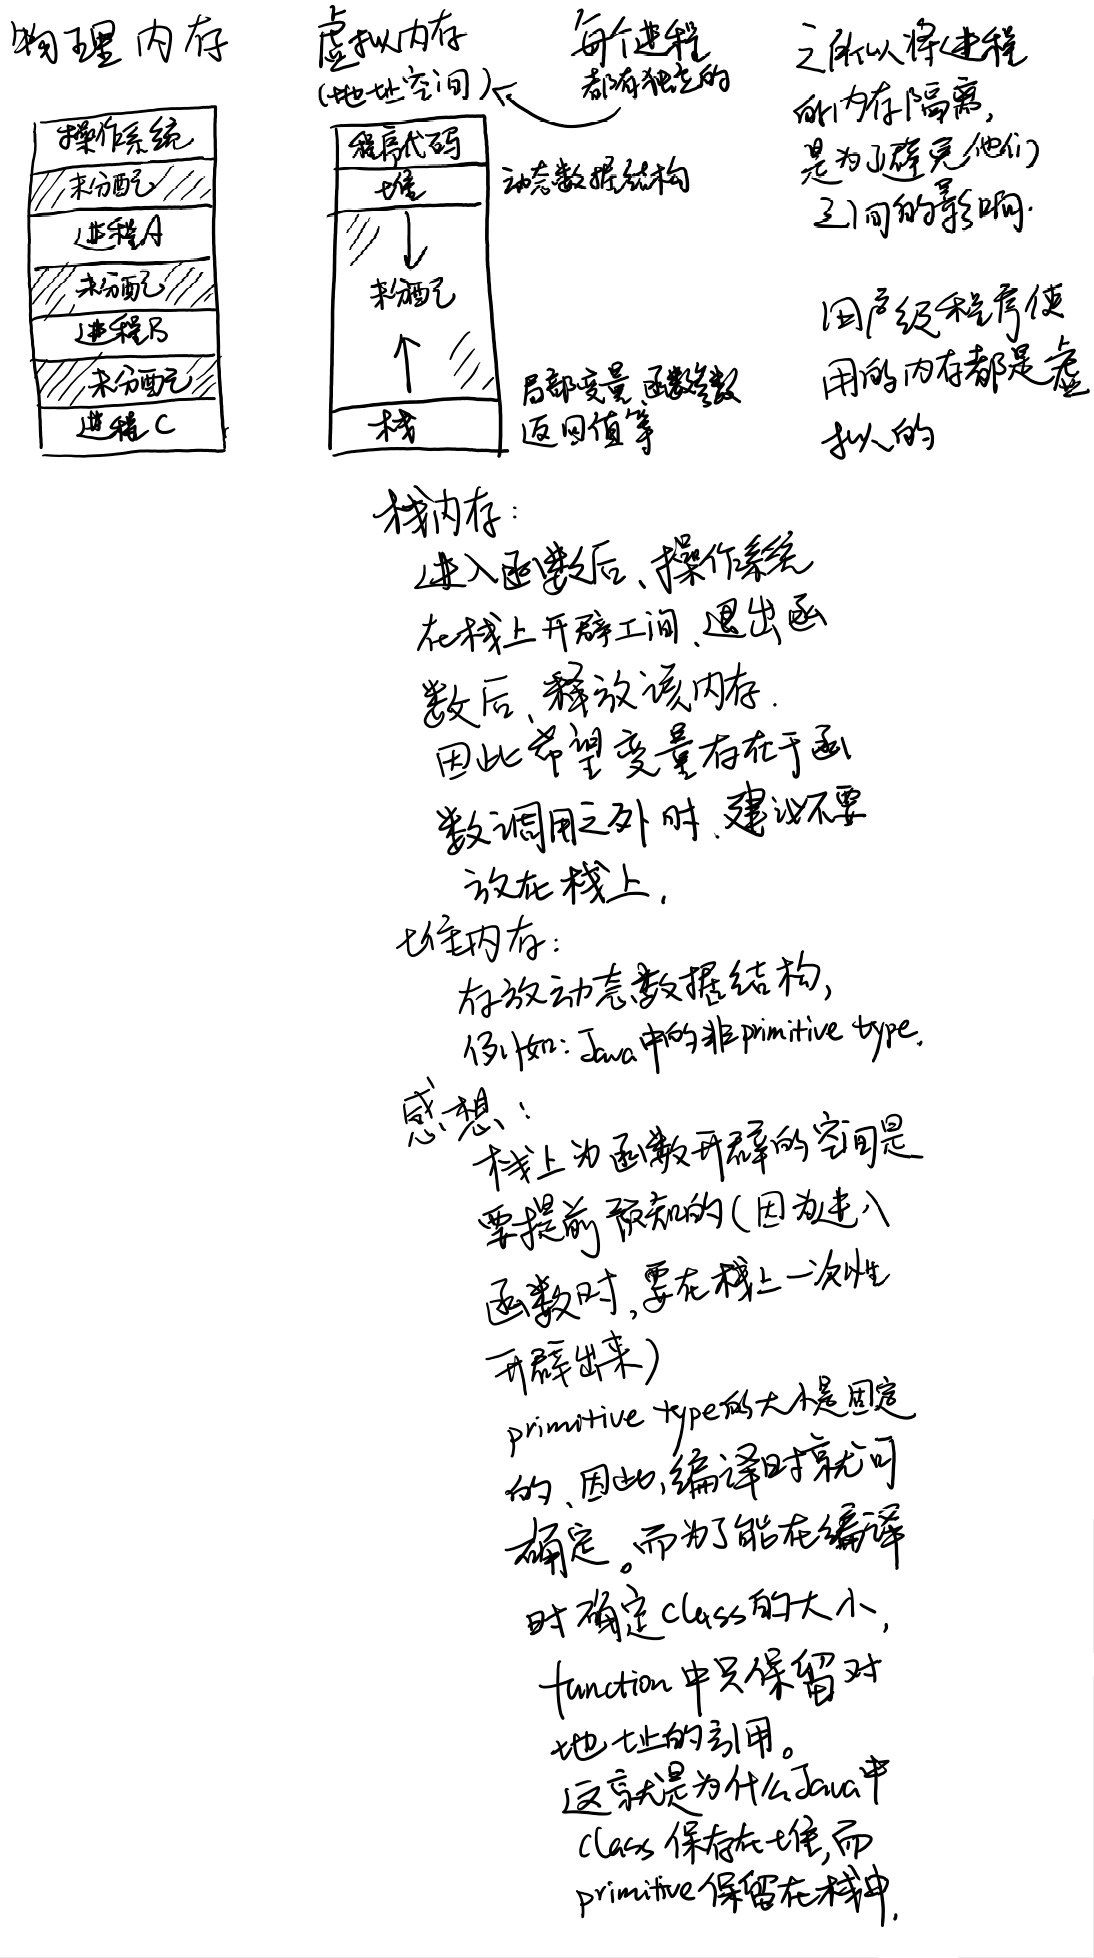 物理内存
操作系统
未分配
进程A
未分配
进程B
未分配
进程C
虚拟内存
(地址空间)
每个进程
都有独立的
程序代码
堆
动态数据结构
未分配
栈
局部变量、函数参数
返回值等
之所以将进程
的内存隔离,
是为了避免他们
之间的影响.
用户级程序使
用的内存都是虚
拟的
栈内存:
进入函数后、操作系统
在栈上开辟工间、退出函
数后、释放该内存.
因此希望变量存在于函
数调用之外时、建议不要
放在栈上.
堆内存:
存放动态数据结构,
例如: Java中的非primitive type.
感想:
栈上为函数开辟的空间是
要提前预知的(因为进入
函数时,要在栈上一次性
开辟出来)
primitive type的大小是固定
的、因此,编译时就可
确定。而为了能在编译
时确定class的大小,
function中只保留对
地址的引用。
这就是为什么Java中
class保存在堆,而
primitive保留在栈中.